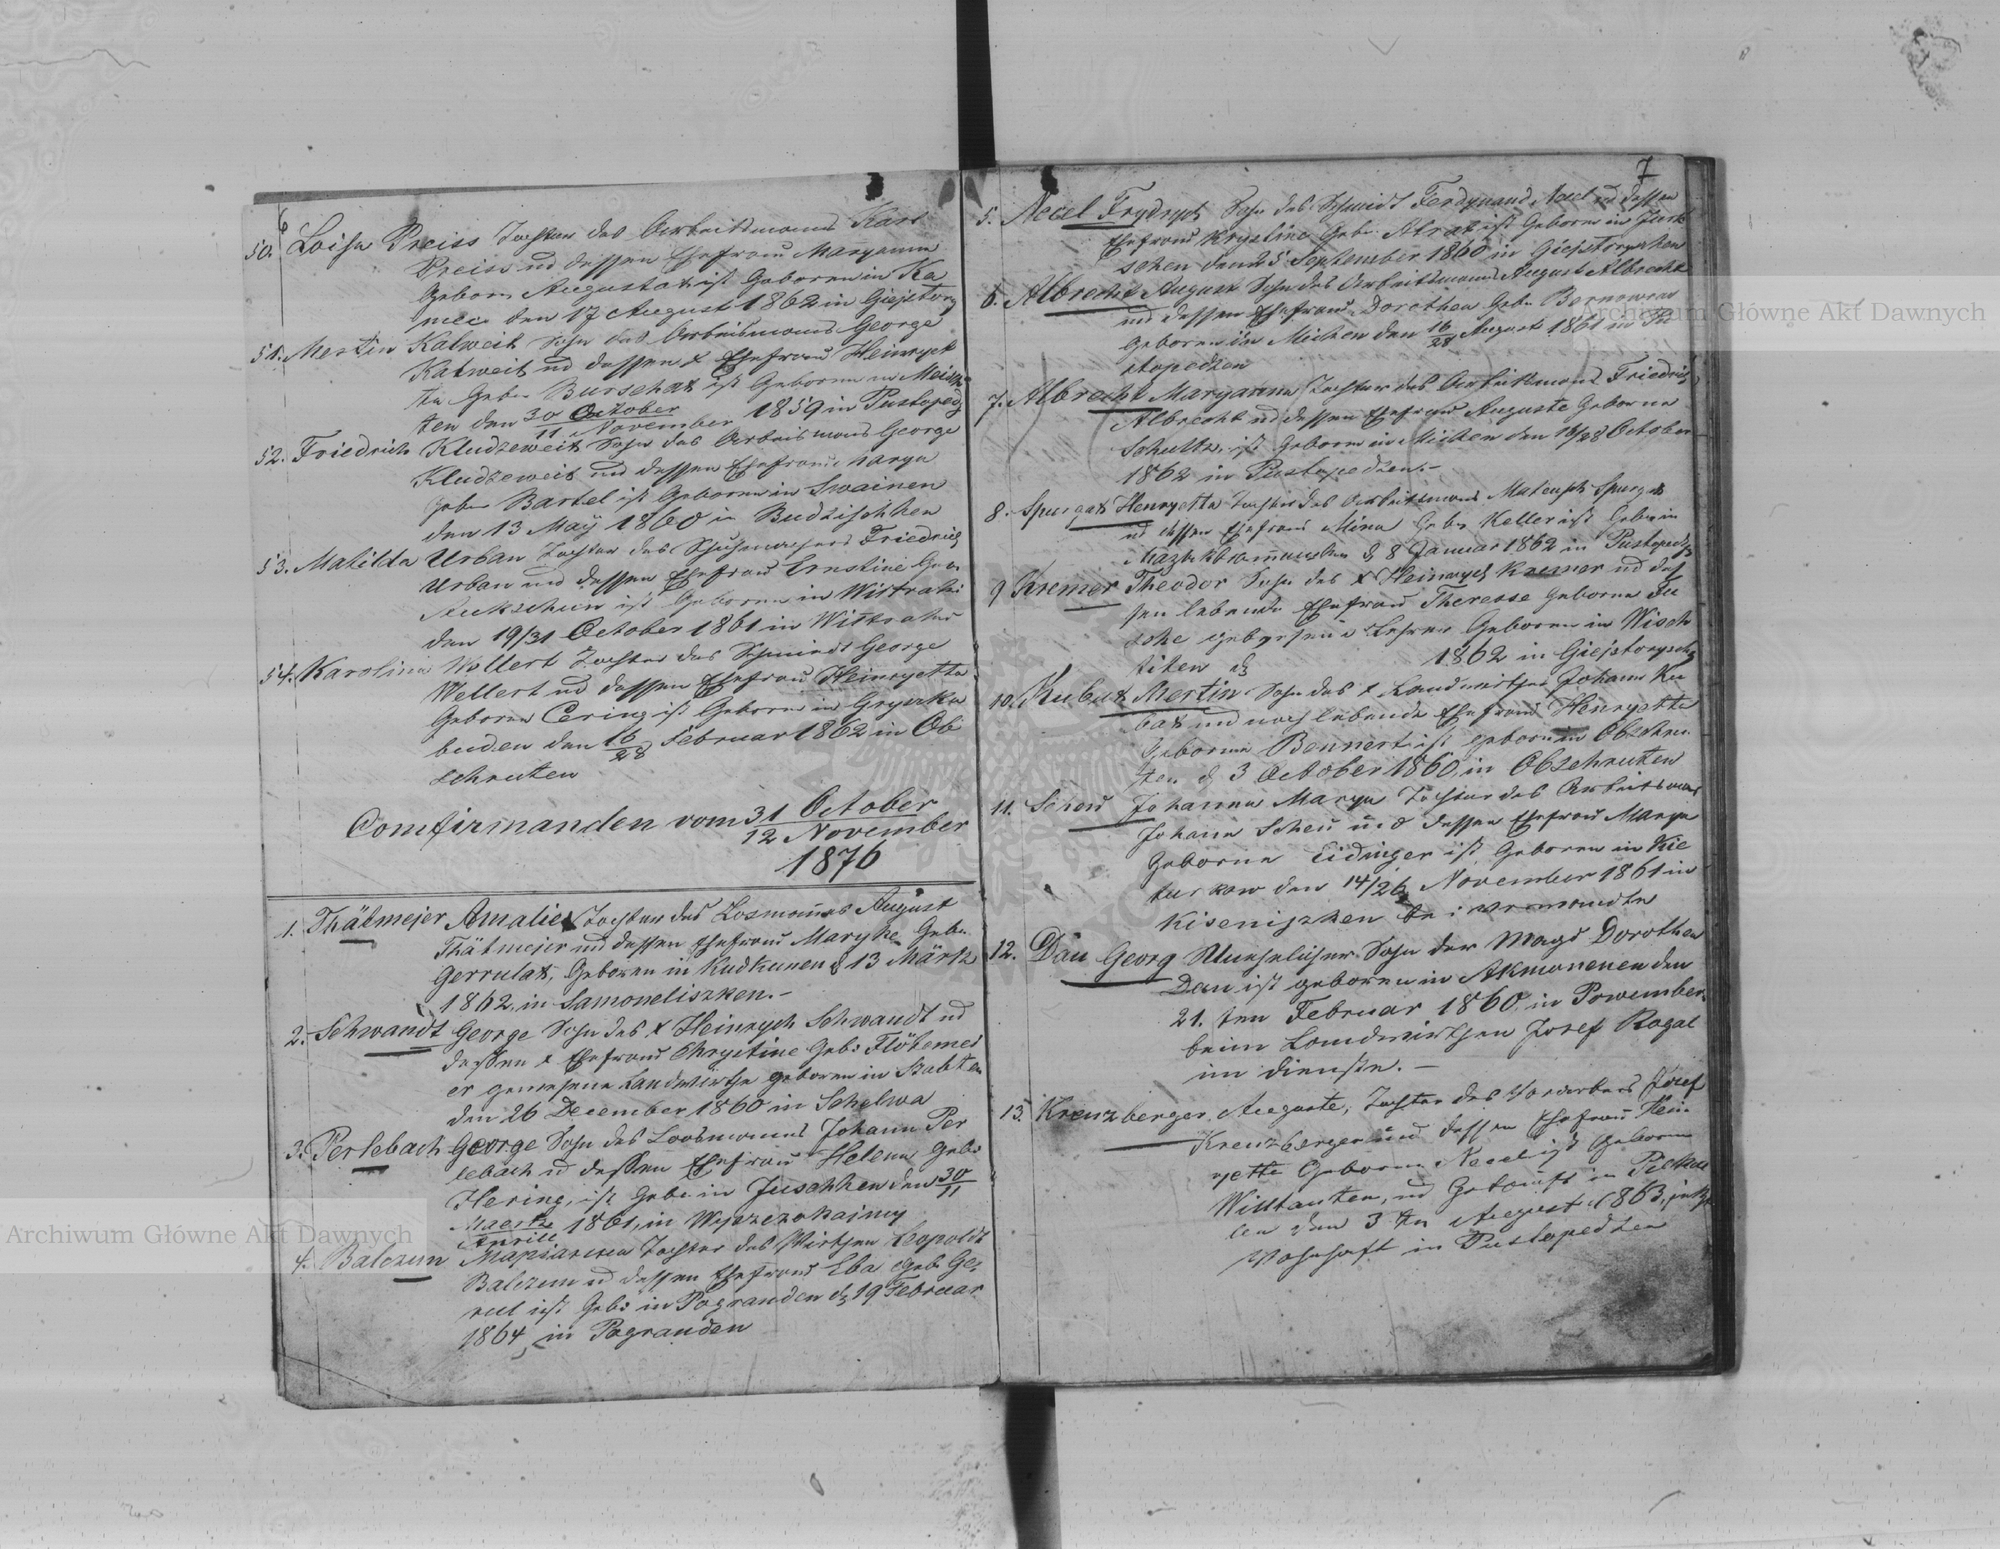 6
50. Loisa Preiss Tochter des Arbeitsmanns Karl
Preiss ud dessen Ehefrau Maryanna
Geborn Augustat ist Geboren in Ka
den 17 August 1862 in Giejstory
51. Mertin Katweit Sohn des Arbeitsmanns George
Katweit ud dessen x Ehefrau Heinryet
ta Gebr Burschat ist Geboren in Meisch
ten den 30 October / 11 November 1859 in Pustopedz
52. Friedrich Kludzeweit Sohn des Arbeitsmans George
Kludzeweit ud dessen Ehefrau Marya
gebr Bartel ist Geboren in Swainen
den 13 May 1860 in Budzischken
53. Matilda Urban Tochter des Schuhmachers Friedrich
Urban und dessen Ehefrau Ernstine Ge
ist Geboren in Wistraki
den 19/31 October 1861 in Wistraken
54. Karolina Wellert Tochter des Schmieds George
Wellert ud dessen Ehefrau Heinryetta
Geboren Cering ist Geboren in Gryszka
buden den 16/28 Februar 1862 in Ob
schruten
Comfirmanden vom 31 October / 12 November
1876
1. Thätmejer Amalie Tochter des Losmanns August
Thätmejer ud dessen Ehefrau Maryke Gebr
Gerrulat, Geboren in Kudkunen d 13 Märtz
1862, in Samoneliszken.-
2. Schwandt George Sohn des x Heinrych Schwandt ud
dessen x Ehefrau Chrystine Geb: Flötemei
er gewesene Landwirthe geboren in Szabten
den 26 December 1860 in Schelwa
3. Perlebach George Sohn des Loosmanns Johann Per
lebach ud dessen Ehefrau Helena Geb:
Hering, ist Geb: in Juschken den 30/11
Maertz / Aprill 1861, in Wyszczokaimy
4. Balczun Maryanna Tochter des Wirthen Leopold
Balczun ud dessen Ehefrau Eba Geb: Ge
rul ist Geb: in Pogranden d 19 Februar
1864, in Pogranden
7
5. Necel Frydrych Sohn des Schmidt Ferdynand Necel ud dessen
Ehefrau Krystine Geb: Atrat ist Geboren in
schen den 25 September 1860 in Giejstoryschen
6. Albrecht August Sohn des Arbeitsmanns August Albrecht
ud dessen Ehefrau Dorothea Geb:
Geboren in Micken den 16/28 August 1861 in Pu
stopedzen
7. Albrecht Maryanna Tochter des Arbeitsmans Friedrich
Albrecht ud dessen Ehefrau Auguste Geborne
Schultz, ist Geboren in Micken den 16/28 October
1862 in Pustopedzen.-
8. Spurgat Henryetta Tochter des Arbeitsmans Mateusch Spurgat
ud dessen Ehefrau Mina Geb: Keller ist Geb: in
d 8 Januar 1862 in Pustopedz
9 Kremer Theodor Sohn des x Heinrych Kremer ud des
sen lebende Ehefrau Theresse Geborne
Geboren in Wisch
titen d 1862 in Giejstorysch
10. Kubat Mertin Sohn des x Landwirthen Johann Ku
bat und noch lebende Ehefrau Henryette
Geborne Bennert ist geboren in Obschru
ten d 3 October 1860, in Obschruten
11. Scheu Johanna Marya Tochter des Arbeitsmans
Johann Scheu und dessen Ehefrau Marya
Geborne Eidinger ist Geboren in Kie
turkow den 14/26 November 1861 in
Kiseniszken bei
12. Dau Georg Unehelicher Sohn der Magd Dorothea
Dau ist geboren in Akmonenen den
21. ten Februar 1860, in Powember
beim Landwirthen Josef Rogal
im Dienste.-
13. Kreuzberger Auguste, Tochter des Josef
Kreuzberger und dessen Ehefrau Hein
ryette Geborne Necel ist Geboren
Wiltauten, ud Getauft in
len den 3 tn August 1863,
Wohnhaft in Pustopedzen
Archiwum Główne Akt Dawnych
Archiwum Główne Akt Dawnych